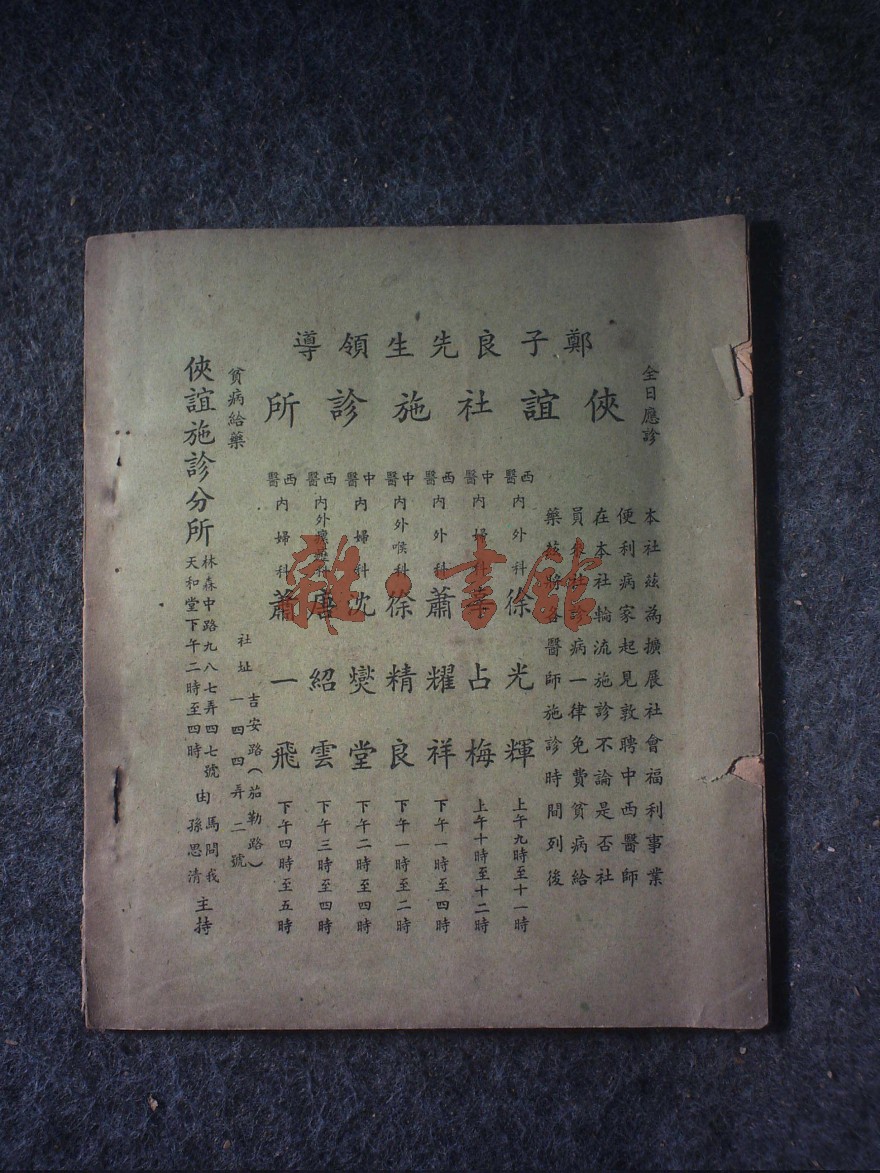 鄭子良先生領導
俠誼社施診所
全日應診
貧病給藥
本社茲為擴展社會福利事業
便利病家起見敦聘中西醫師
在本社輪流施診不論是否社
員來社診病一律免費貧病給
藥茲將各醫師施診時間列後
西醫內外科 徐光輝 上午九時至十一時
中醫內婦科 占梅 上午十時至十二時
西醫內外科 蕭耀祥 下午一時至四時
中醫內外喉科 徐精良 下午一時至二時
中醫內婦科 沈燮堂 下午二時至四時
西醫內外 科 唐紹雲 下午三時至四時
西醫內婦科 蕭一飛 下午四時至五時
社址 吉安路(茄勒路)一四四弄二號
俠誼施診分所
林森中路九八七弄四七號
天和堂下午二時至四時
由馬問我
孫思清
主持
雜·書館